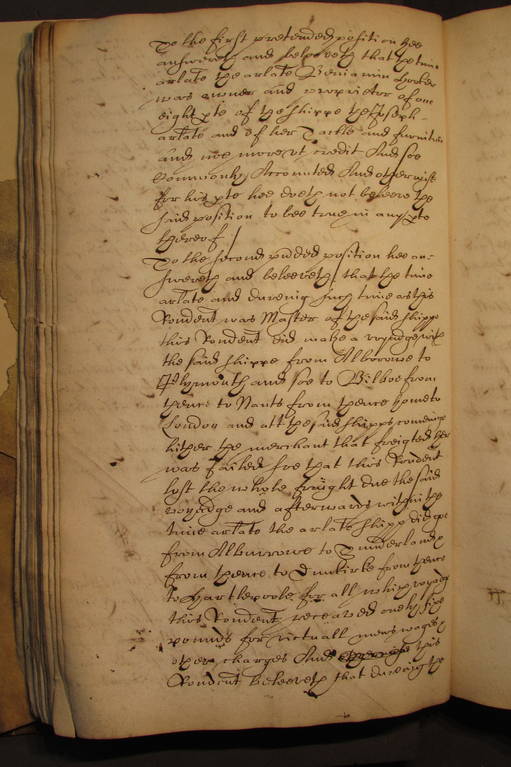 To the first pretended position hee
answereth and beleeveth that the time
arlate the arlate Beniamin Hooker
was owner and proprietor of one
eight pte of the shippe the Joseph
arlate and of her Tackle and furniture
and noe more et credit And soe
Commonly Accounted And otherwise
for his pte hee doeth not beleeve the
said position to bee true in any pte
thereof /
To the second pnded position hee an-
swereth and beleeveth that the time
arlate and dureing such time as this
Rondent was Master of the said shippe
this Rondent did make a voyadge with
the said shippe from Alborowe to
Plymouth and soe to Bilboe from
thence to Nants from thence home to
London and att the said shipps comeing
hither the merchant that freighted her
was failed soe that this Rondent
lost the whole fraight due the said
voyadge and afterwards within the
time arlate the arlate shipp did goe
from Alburrowe to Sunderland
from thence to Dunkirke from thence
to Hartlepoole for all which voyadges
this Rondent received onely five
pounds for victuall mens wages
other charges And this
Rondent beleeveth that dureing the